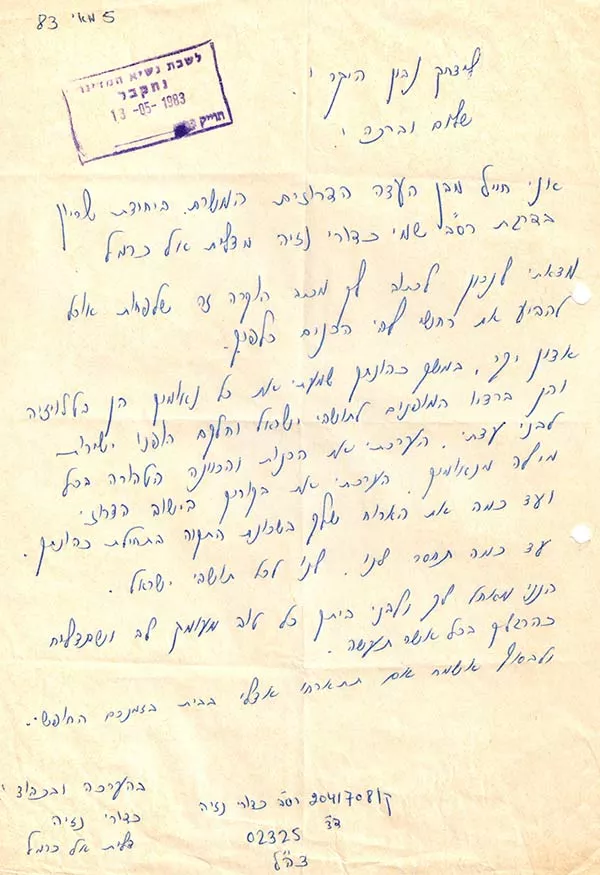 5 מאי 83
לשכת נשיא המדינה
נתקבל
13-05-1983
תוייק
ליצחק נבון היקר !
שלום וברכה !
אני חייל מבן העדה הדרוזית המשרת ביחידת שריון
בדרגת רס"ב שמי כדורי נזיה מדלית אל כרמל
מצאתי לנכון לכתוב לך מכתב הוקרה זה שלפחות אוכל
להביע את רחשי לבי הכנים כלפיך.
אדון יקר, במשך כהונתך שמעתי את כל נאומיך הן בטלויזיה
והן ברדיו המופנים לתושבי ישראל וחלקם הופנו ישירות
לבני עדתי. הערכתי את הכנות והכוונה הטהורה בכל
מילה מנאומיך. הערכתי את בקוריך בישוב הדרוזי
ועד כמה את הארוח שלך בשכונת התקוה בתחילת כהונתך.
עד כמה תחסר לנו. לנו לכל תושבי ישראל.
הנני מאחל לך ולבני ביתך כל טוב מעומק לב ושתצליח
כהרגלך בכל אשר תעשה.
ולבסוף אשמח אם תתארחו אצלי בבית בזמנכם החופשי..
בהערכה ובכבוד !
כדורי נזיה
דלית אל כרמל
2041708/ק רס"ב כדורי נזיה
ד"צ 02325
צה"ל